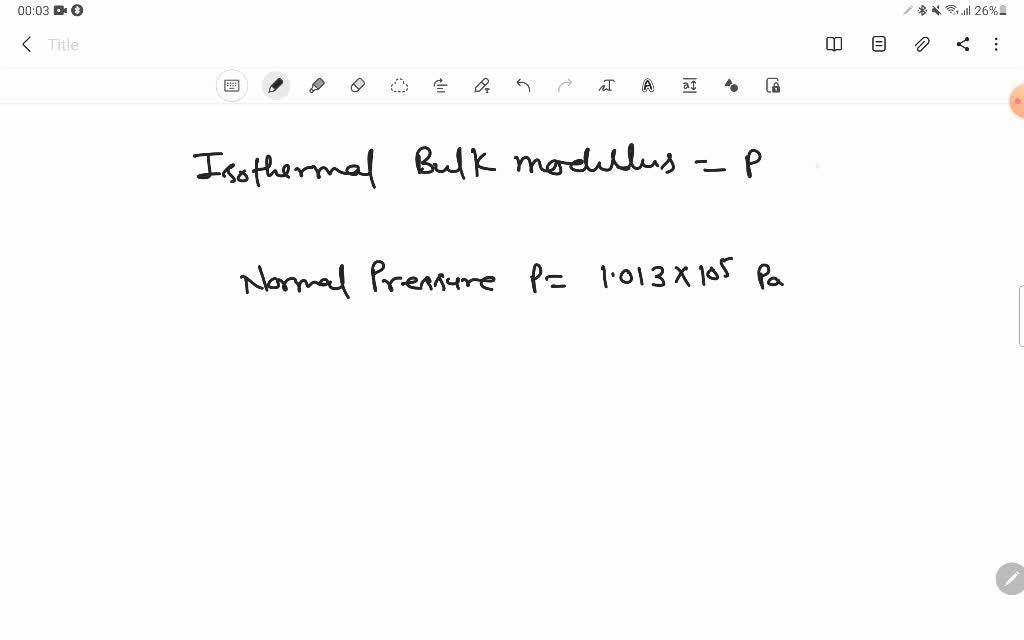 00:03 26%
Title
Isothermal Bulk modullus = P
Normal Pressure P= 1.013 × 10⁵ Pa